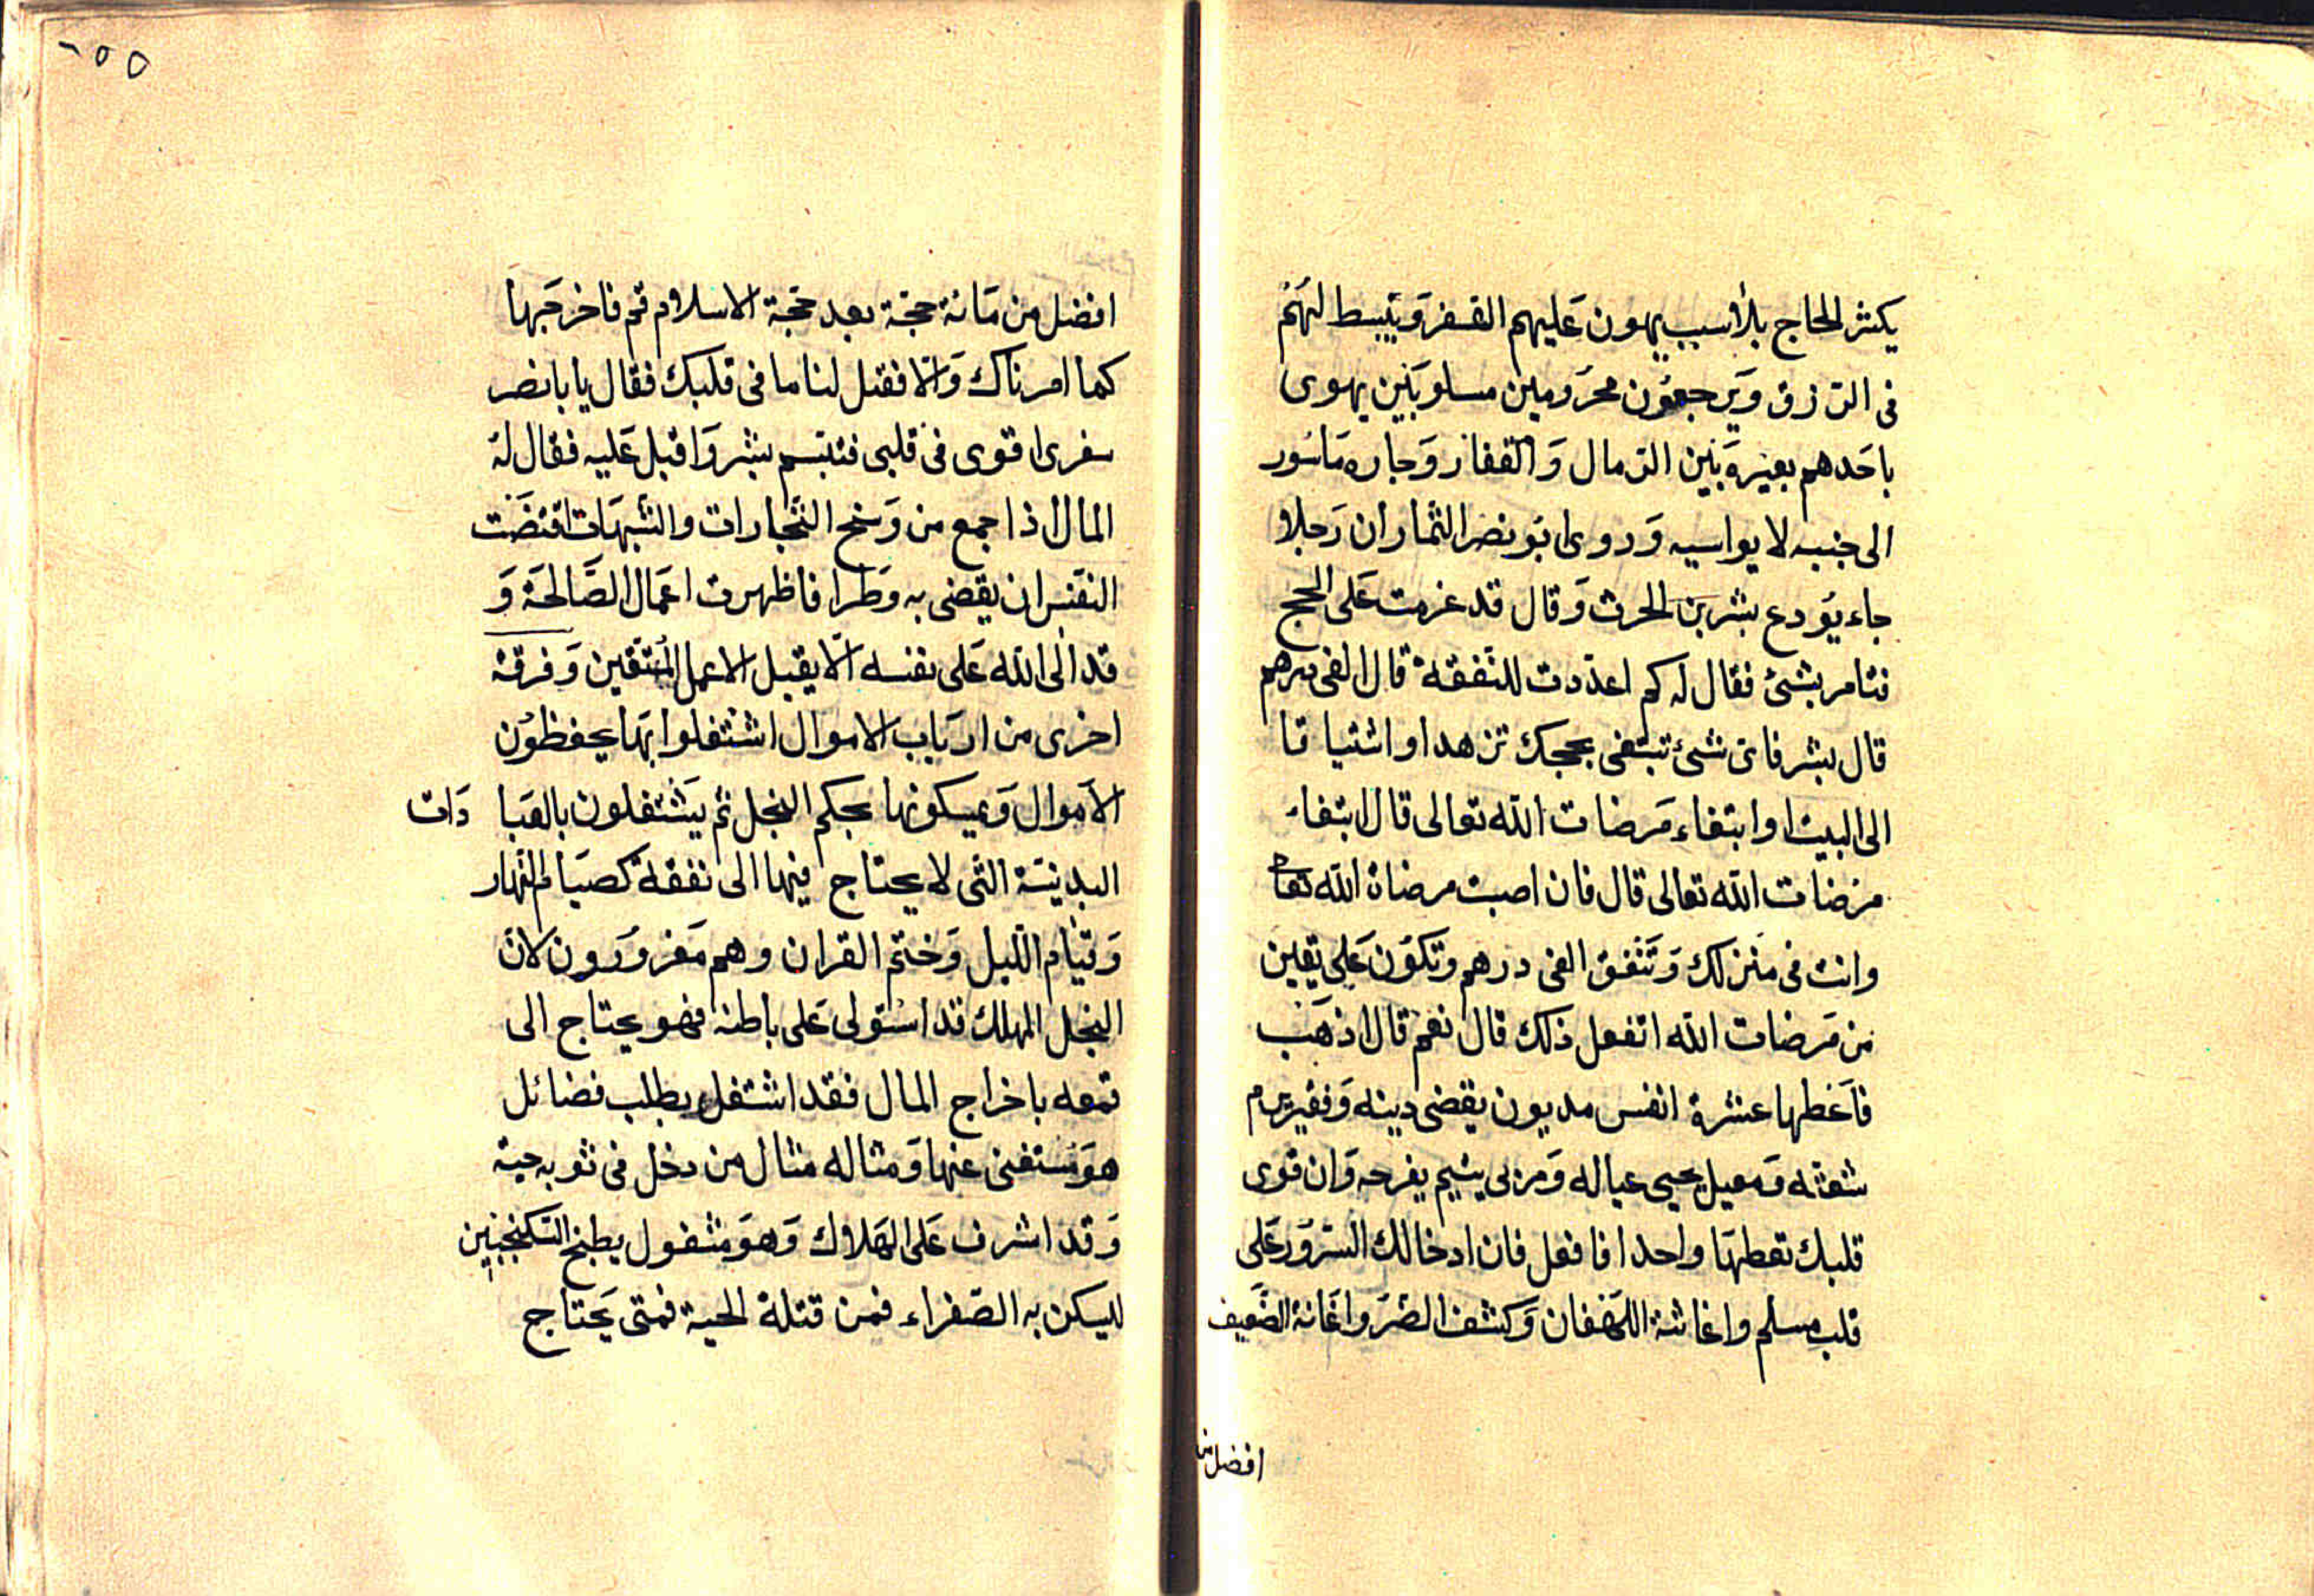 يكثر الحاج بلا سبب يهون عليهم السفر ويبسط لهم
فى الرزق ويرجعون محرومين مسلوبين يهوى
باحدهم بعيره بين الرمال والقفار وجاره ماسور
الى جنبه لا يواسيه وروى ابو نصر التمار ان رجلا
جاء يودع بشر بن الحرث وقال قد عزمت على الحج
فتامر بشئ فقال له كم اعددت للنفقة قال الفى درهم
قال بشر فاى شئ تبتغى بحجك تزهدا او اشتياقا
الى البيت او ابتغاء مرضات الله تعالى قال ابتغاء
مرضات الله تعالى قال فان اصبت مرضاة الله تعا
وانت فى منزلك وتنفق الفى درهم وتكون على يقين
من مرضات الله اتفعل ذلك قال نعم قال اذهب
فاعطها عشرة انفس مديون يقضى دينه وفقير يرم
شعثه ومعيل يحيى عياله ومربى يتيم يفرحه وان قوى
قلبك تعطها واحدا فافعل فان ادخالك السرور على
قلب مسلم واغاثة اللهفان وكشف الضر واغانة الضعيف
افضل من
٢٥٥
افضل من مائة حجة بعد حجة الاسلام قم فاخرجها
كما امرناك والا فقل لنا ما فى قلبك فقال يا با نصر
سفرى اقوى فى قلبى فتبسم بشر واقبل عليه فقال له
المال اذا جمع من وسخ التجارات والشبهات اقتضت
النفس ان يقضى به وطرا فاظهرت اعمال الصالحة و
قد الى الله على نفسه الا يقبل الا عمل المتقين وفرقة
اخرى من ارباب الاموال اشتغلوا بها يحفظون
الاموال ويمسكونها بحكم البخل ثم يشتغلون بالعبا دات
البدنية التى لا يحتاج فيها الى نفقة كصيام النهار
وقيام الليل وختم القران وهم مغرورون لان
البخل المهلك قد استولى على باطنه فهو يحتاج الى
قمعه باخراج المال فقد اشتغل بطلب فضائل
هو مستغنى عنها ومثاله مثال من دخل فى ثوبه حية
وقد اشرف على الهلاك وهو مشغول بطبخ السكنجبين
ليسكن به الصفراء فمن قتلة الحية فمتى يحتاج